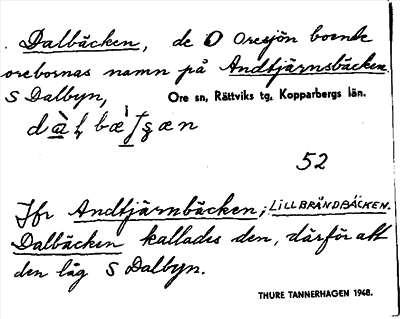 Dalbäcken, de O Oresjön boende
orebornas namn på Andtjärnsbäcken
S Dalbyn, Ore sn, Rättviks tg, Kopparbergs län.
52
Jfr Andtjärnbäcken; LILLBRÄNDBÄCKEN.
Dalbäcken kallades den, därför att
den låg S Dalbyn.
THURE TANNERHAGEN 1948.